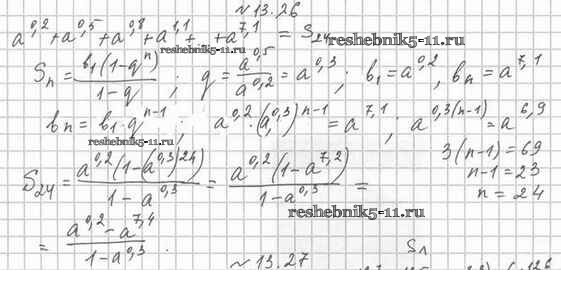 №13.26
a^0,2 + a^0,5 + a^0,8 + a^1,1 + … + a^7,1 = S_24
reshebnik5-11.ru
reshebnik5-11.ru
S_n = b_1(1-q^n) / 1-q ; q = a^0,5 / a^0,2 = a^0,3 ; b_1 = a^0,2, b_n = a^7,1
b_n = b_1·q^n-1 a^0,2·(a^0,3)^n-1 = a^7,1 ; a^0,3(n-1) = a^6,9
reshebnik5-11.ru
3(n-1) = 69
n-1 = 23
n = 24
S_24 = a^0,2(1-(a^0,3)^24) / 1-a^0,3 = a^0,2(1-a^7,2) / 1-a^0,3 =
reshebnik5-11.ru
= a^0,2 - a^7,4 / 1-a^0,3 .
№13.27